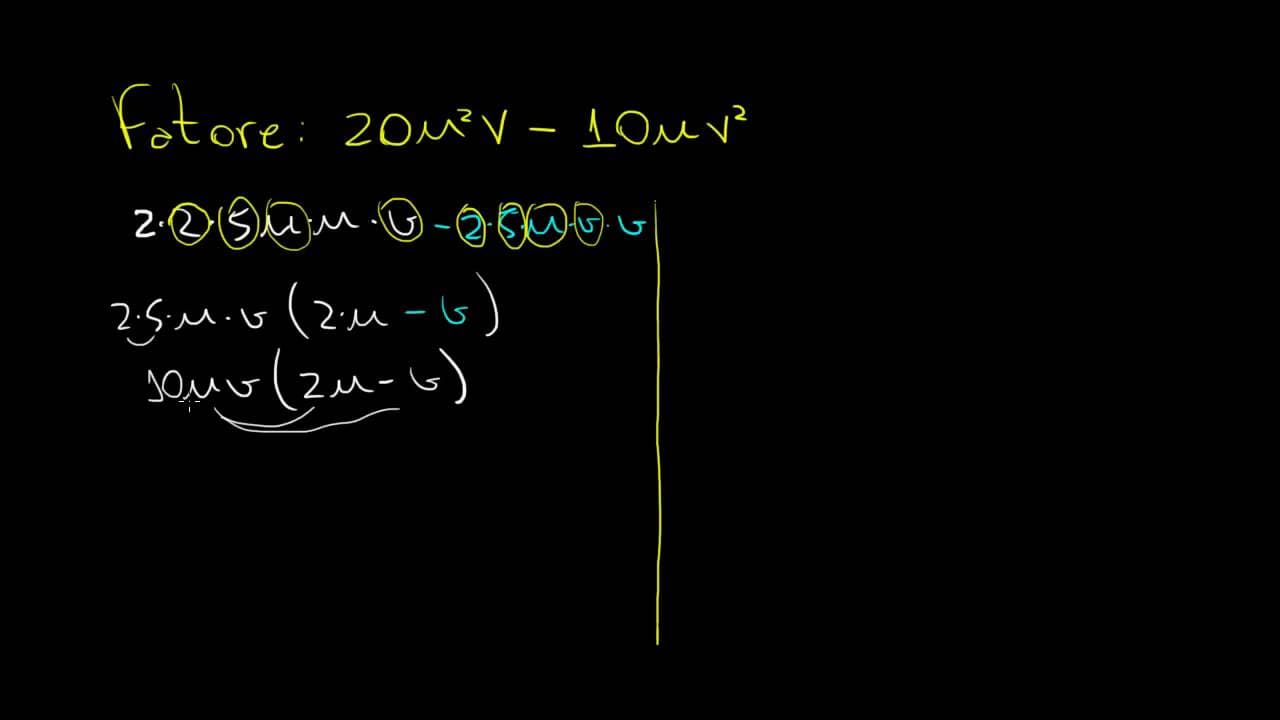 Fatore: 20u²v - 10uv²
2·2·5u·u·v - 2·5·u·v·v
2·5·u·v (2·u - v)
10uv (2u - v)